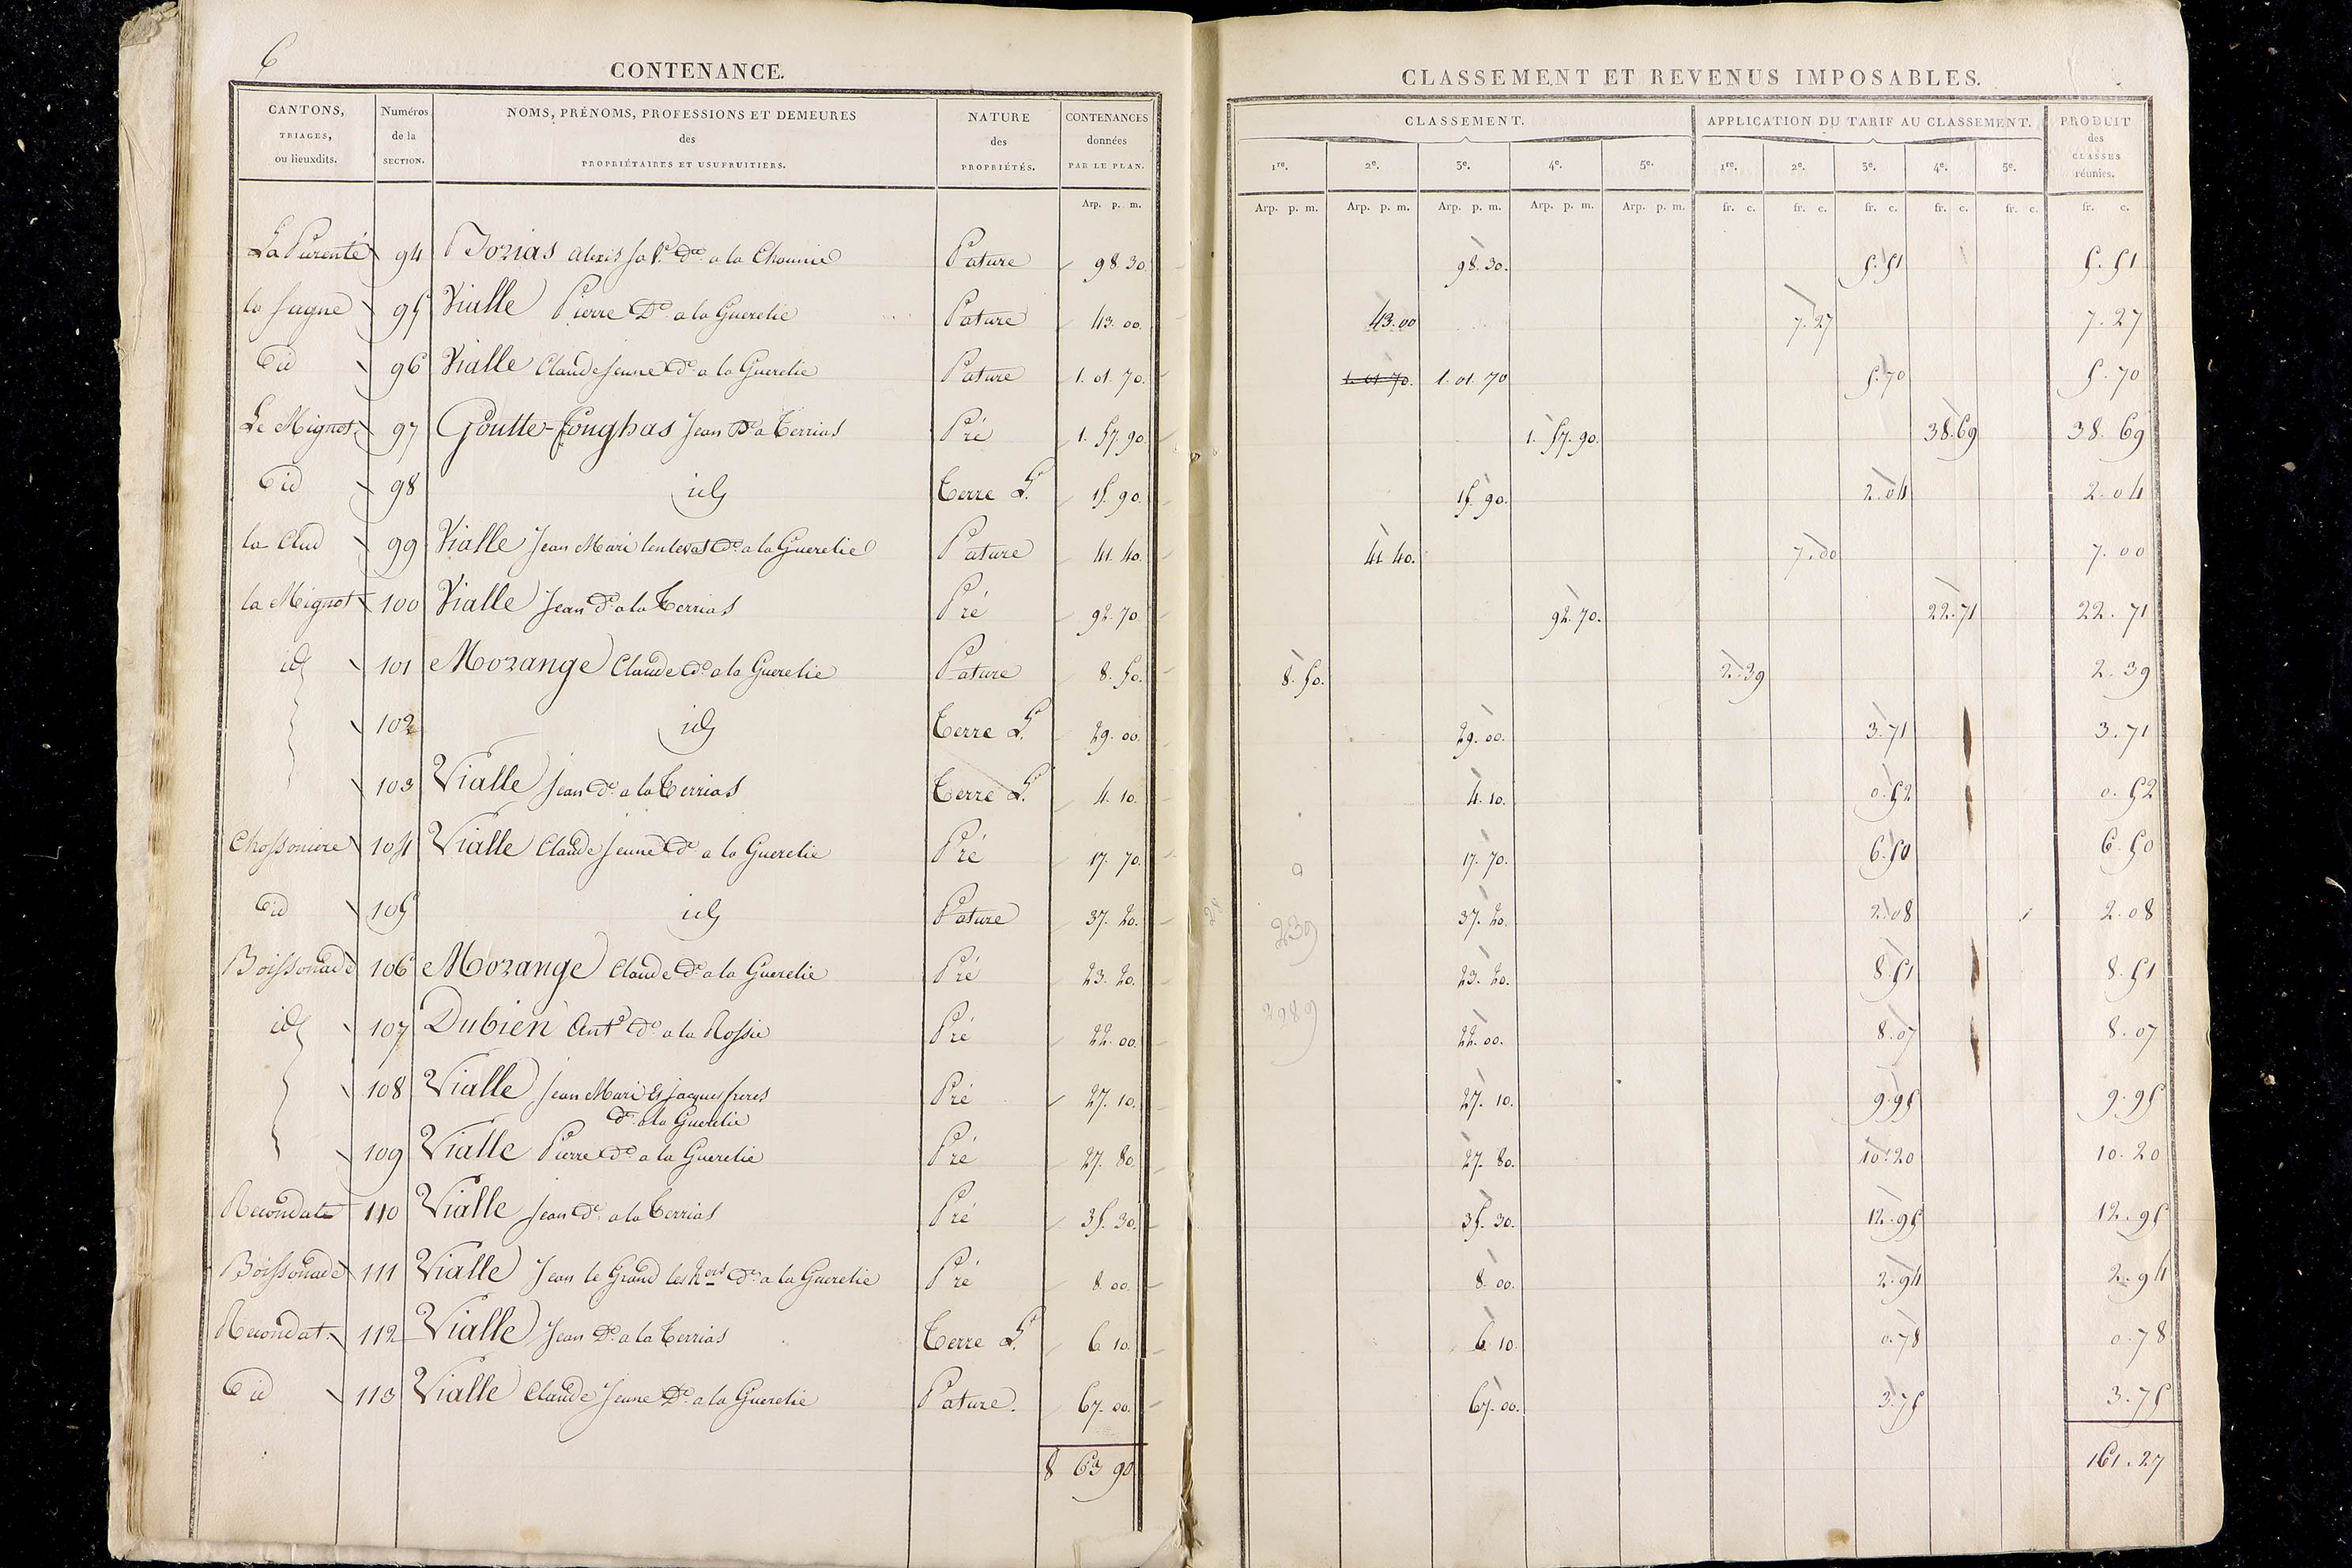 6
CONTENANCE.
CANTONS, TRIAGES, ou lieuxdits. | Numéros de la SECTION. | NOMS, PRÉNOMS, PROFESSIONS ET DEMEURES des PROPRIÉTAIRES ET USUFRUITIERS. | NATURE des PROPRIÉTÉS. | CONTENANCES données PAR LE PLAN.
Arp. p. m.
CLASSEMENT ET REVENUS IMPOSABLES.
CLASSEMENT. | APPLICATION DU TARIF AU CLASSEMENT. | PRODUIT des CLASSES réunies.
1re. 2e. 3e. 4e. 5e. 1re. 2e. 3e. 4e. 5e.
Arp. p. m. Arp. p. m. Arp. p. m. Arp. p. m. Arp. p. m. fr. c. fr. c. fr. c. fr. c. fr. c. fr. c.
La Purenté 94 alexis a la Choumie Pature 98 30 98. 30. 5. 51 5. 51
la fagne 95 Vialle Pierre De. a la Guerelie Pature 43. 00 43. 00 7. 27 7. 27
id 96 Vialle Claude Jeune De. a la Guerelie Pature 1. 01. 70. 1. 01. 70. 1. 01. 70 5. 70 5. 70
Le Mignot 97 Goutte-fonghas Jean De. a Terrias Pré 1. 57. 90. 1. 57. 90. 38. 69 38. 69
id 98 id Terre L. 15. 90. 15. 90. 2. 04 2. 04
la Clud 99 Vialle Jean Mari De. a la Guerelie Pature 41. 40. 41 40. 7. 00 7. 00
la Mignot 100 Vialle Jean De. a la Terrias Pré 92. 70 92. 70. 22. 71 22. 71
id 101 Mozange Claude De. a la Guerelie Pature 8. 50. 8. 50. 2. 39 2. 39
102 id Terre L. 29. 00 29. 00. 3. 71 3. 71
103 Vialle Jean De. a la Terrias Terre L. 4. 10. 4. 10. 0. 52 0. 52
Chossoniere 104 Vialle Claude Jeune De. a la Guerelie Pré 17. 70. 17. 70. 6. 50 6. 50
id 105 id Pature 37. 20. 37. 20. 2. 08 2. 08
239
Boissonade 106 Mozange Claude De. a la Guerelie Pré 23. 20. 23. 20. 8. 51 8. 51
2989
id 107 Dubien Ante. De. a la Rossie Pré 22. 00. 22. 00. 8. 07 8. 07
108 Vialle Jean Mari Et Jacques freres Pré 27. 10. 27. 10. 9. 95 9. 95
De. a la Guerelie
109 Vialle Pierre De. a la Guerelie Pré 27. 80 27. 80. 10. 20 10. 20
Recondat 110 Vialle Jean De. a la Terrias Pré 35. 30. 35. 30. 12. 95 12. 95
Boissonade 111 Vialle Jean le Grand les hers De. a la Guerelie Pré 8 00. 8. 00. 2. 94 2. 94
Recondat 112 Vialle Jean De. a la Terrias Terre L. 6 10. 6. 10. 0. 78 0. 78
id 113 Vialle Claude Jeune De. a la Guerelie Pature. 67. 00. 67. 00. 3. 75 3. 75
8 63 90 161. 27